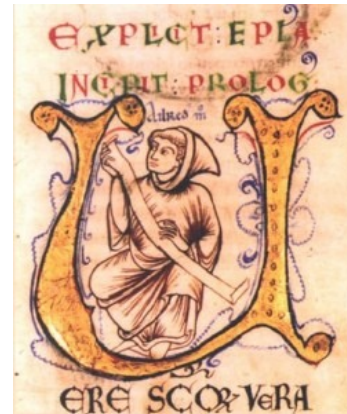 EXPLICT: EPLA
INCIPIT: PROLOG
U
ERE SCOR VERA